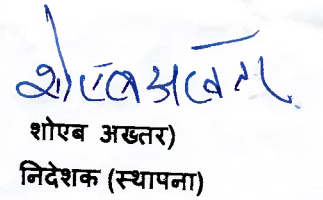 शोएब अख्तर
शोएब अख्तर)
निदेशक (स्थापना)